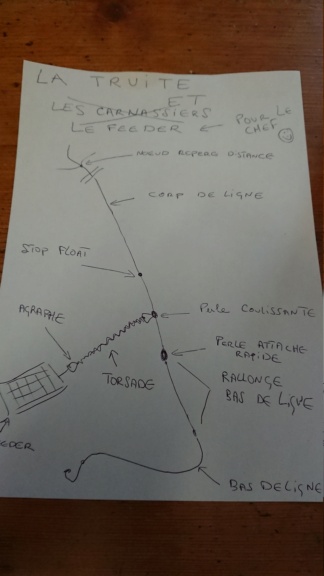 LA TRUITE
ET
LES CARNASSIERS
LE FEEDER ← POUR LE CHEF
NOEUD REPERE DISTANCE
CORP DE LIGNE
STOP FLOAT
AGRAPHE
Perle COULISSANTE
PERLE ATTACHE
RAPIDE
TORSADE
RALLONGE
BAS DE LIGNE
EDER
BAS DE LIGNE